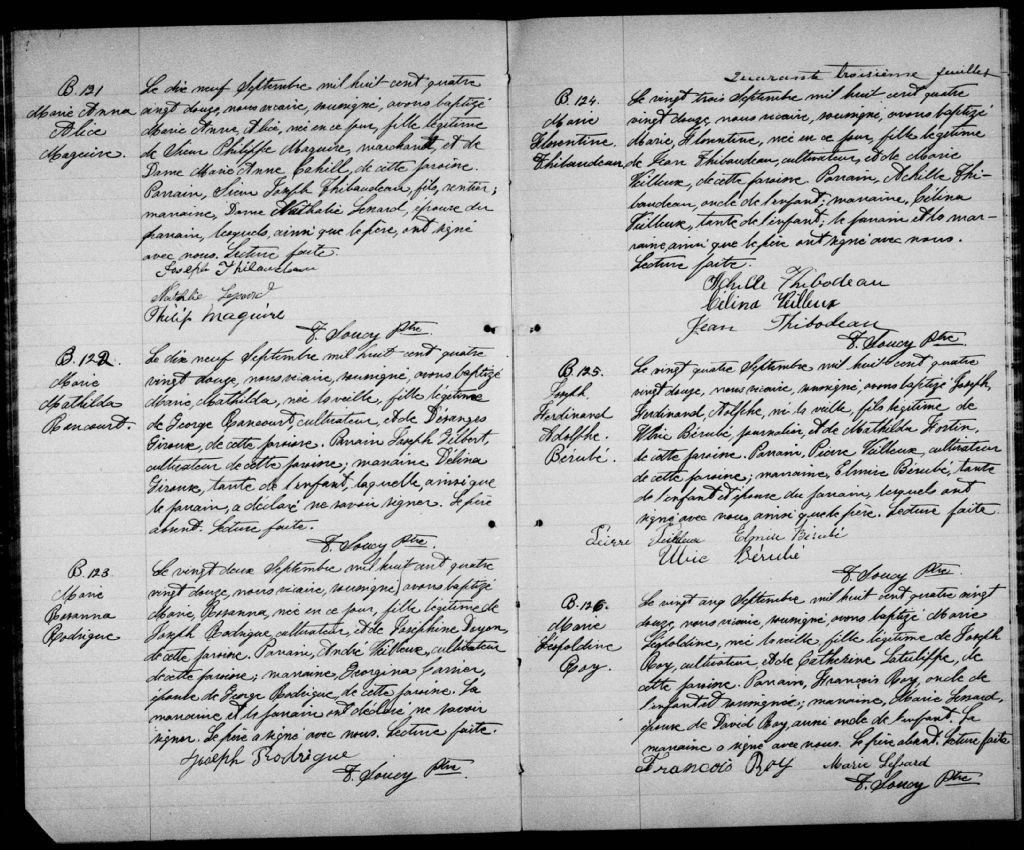 B. 121
Marie Anna
Alice
Maguire.
Le dix neuf Septembre mil huit cent quatre
vingt douze, nous vicaire, soussigné, avons baptizé
Marie Anna, Alice, née en ce jour, fille légitime
de Sieur Philippe Maguire, marchand, et de
Dame Marie Anne Cahill, de cette paroisse.
Parrain, Sieur Joseph Thibaudeau, fils, rentier;
marraine, Dame Nathalie Lessard, épouse du
parrain, lesquels, ainsi que le père, ont signé
avec nous. Lecture faite.
Joseph Thibaudeau
Nathalie Lessard
Philip Maguire
F. Soucy Ptre
B. 122
Marie
Mathilda
Rancourt.
Le dix neuf Septembre mil huit cent quatre
vingt douze, nous vicaire, soussigné, avons baptizé
Marie, Mathilda, née la veille, fille légitime
de George Rancourt, cultivateur, et de Désanges
Giroux, de cette paroisse. Parrain Joseph Gilbert,
cultivateur de cette paroisse; marraine Délina
Giroux, tante de l'enfant, laquelle ainsi que
le parrain, a déclaré ne savoir signer. Le père
absent. Lecture faite.
F. Soucy Ptre
B. 123
Marie
Rosanna
Rodrigue
Le vingt deux Septembre mil huit cent quatre
vingt douze, nous vicaire, soussigné, avons baptizé
Marie, Rosanna, née en ce jour, fille légitime de
Joseph Rodrigue, cultivateur, et de Joséphine Doyon,
de cette paroisse. Parrain, André Veilleux, cultivateur
de cette paroisse; marraine, Georgina
épouse de George Rodrigue, de cette paroisse. La
marraine et le parrain ont déclaré ne savoir
signer. Le père a signé avec nous. Lecture faite.
Joseph Rodrigue
F. Soucy Ptre
Quarante troisième feuillet
B. 124.
Marie
Florentine
Thibaudeau
Le vingt trois Septembre mil huit cent quatre
vingt douze, nous vicaire, soussigné, avons baptizé
Marie, Florentine, née en ce jour, fille légitime
de Jean Thibaudeau, cultivateur, et de Marie
Veilleux, de cette paroisse. Parrain, Achille Thi-
baudeau, oncle de l'enfant; marraine, Célina
Veilleux, tante de l'enfant; le parrain et la mar-
raine, ainsi que le père ont signé avec nous.
Lecture faite.
Achille Thibodeau
Célina Veilleux
Jean Thibodeau
F. Soucy Ptre
B. 125.
Joseph
Ferdinand
Adolphe.
Bérubé.
Le vingt quatre Septembre mil huit cent quatre
vingt douze, nous vicaire, soussigné, avons baptizé Joseph,
Ferdinand, Adolphe, né la veille, fils légitime de
Ulric Bérubé, journalier, et de Mathilda Fortin,
de cette paroisse. Parrain, Pierre Veilleux, cultivateur
de cette paroisse; marraine, Elmire Bérubé, tante
de l'enfant et épouse du parrain, lesquels ont
signé avec nous, ainsi que le père. Lecture faite
Pierre Veilleux Elmire Bérubé
Ulric Bérubé
F. Soucy Ptre
B. 126.
Marie
Léopoldine
Roy.
Le vingt cinq Septembre mil huit cent quatre vingt
douze, nous vicaire, soussigné, avons baptizé Marie
Léopoldine, née la veille, fille légitime de Joseph
Roy, cultivateur, et de Catherine Latulippe, de
cette paroisse. Parrain, François Roy, oncle de
l'enfant et soussigné; marraine, Marie Lessard,
épouse de David Roy, aussi oncle de l'enfant. La
marraine a signé avec nous. Le père absent. Lecture faite
François Roy Marie Lessard
F. Soucy Ptre